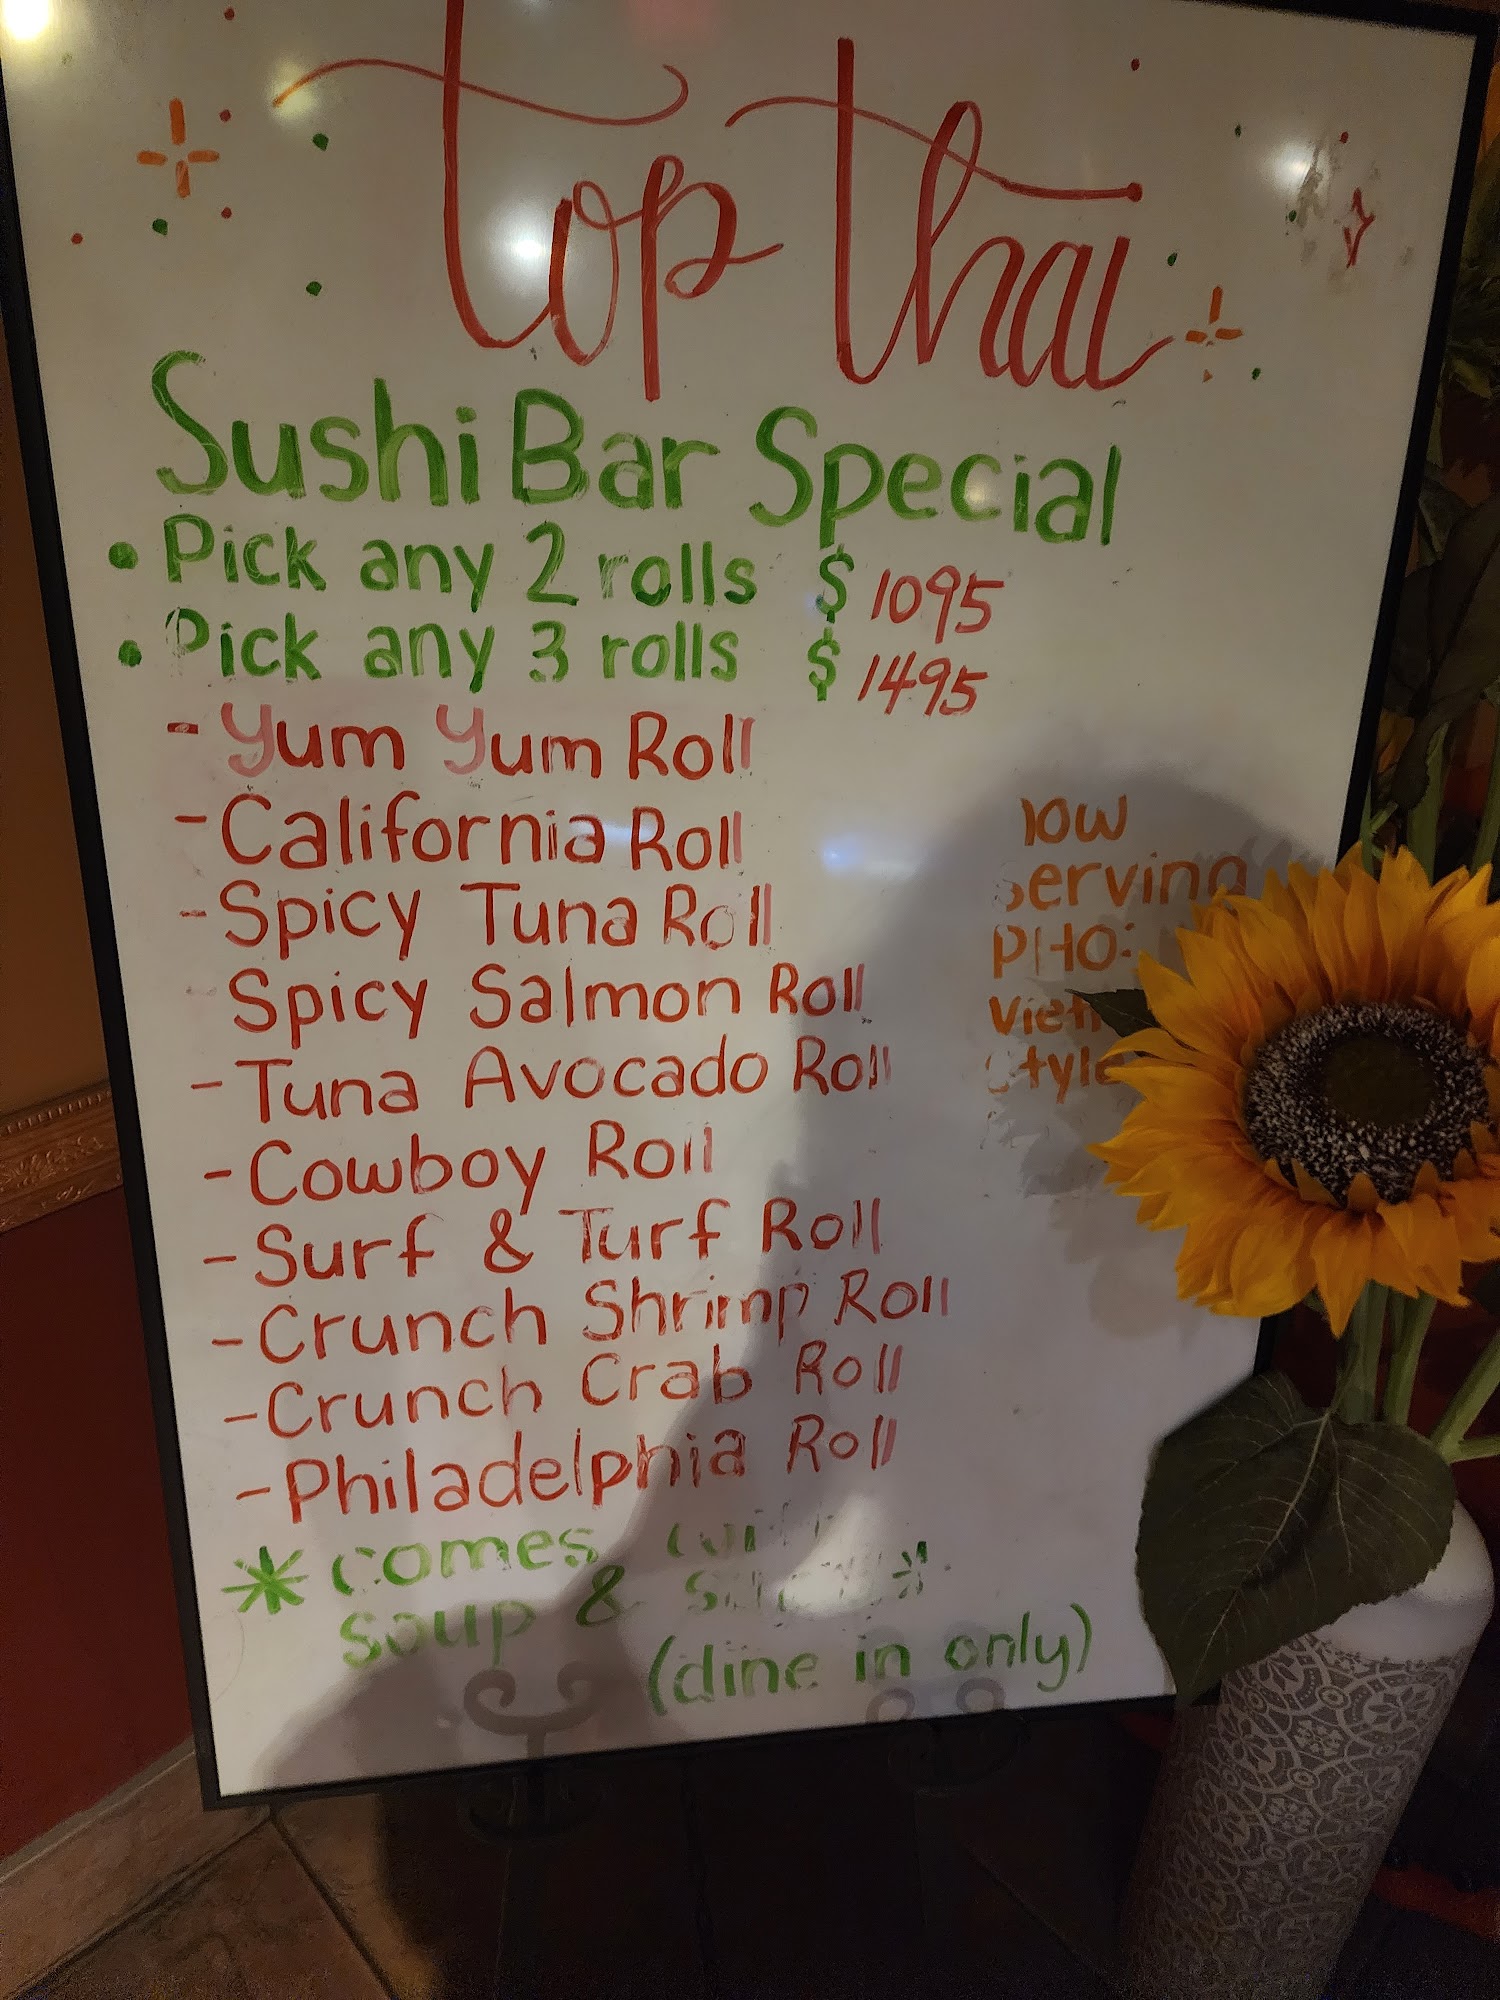 Top Thai
Sushi Bar Special
• Pick any 2 rolls $ 1095
• Pick any 3 rolls $ 1495
- Yum Yum Roll
- California Roll
- Spicy Tuna Roll
- Spicy Salmon Roll
- Tuna Avocado Roll
- Cowboy Roll
- Surf & Turf Roll
- Crunch Shrimp Roll
- Crunch Crab Roll
- Philadelphia Roll
* comes
soup & *
(dine in only)
serving
PHO:
style